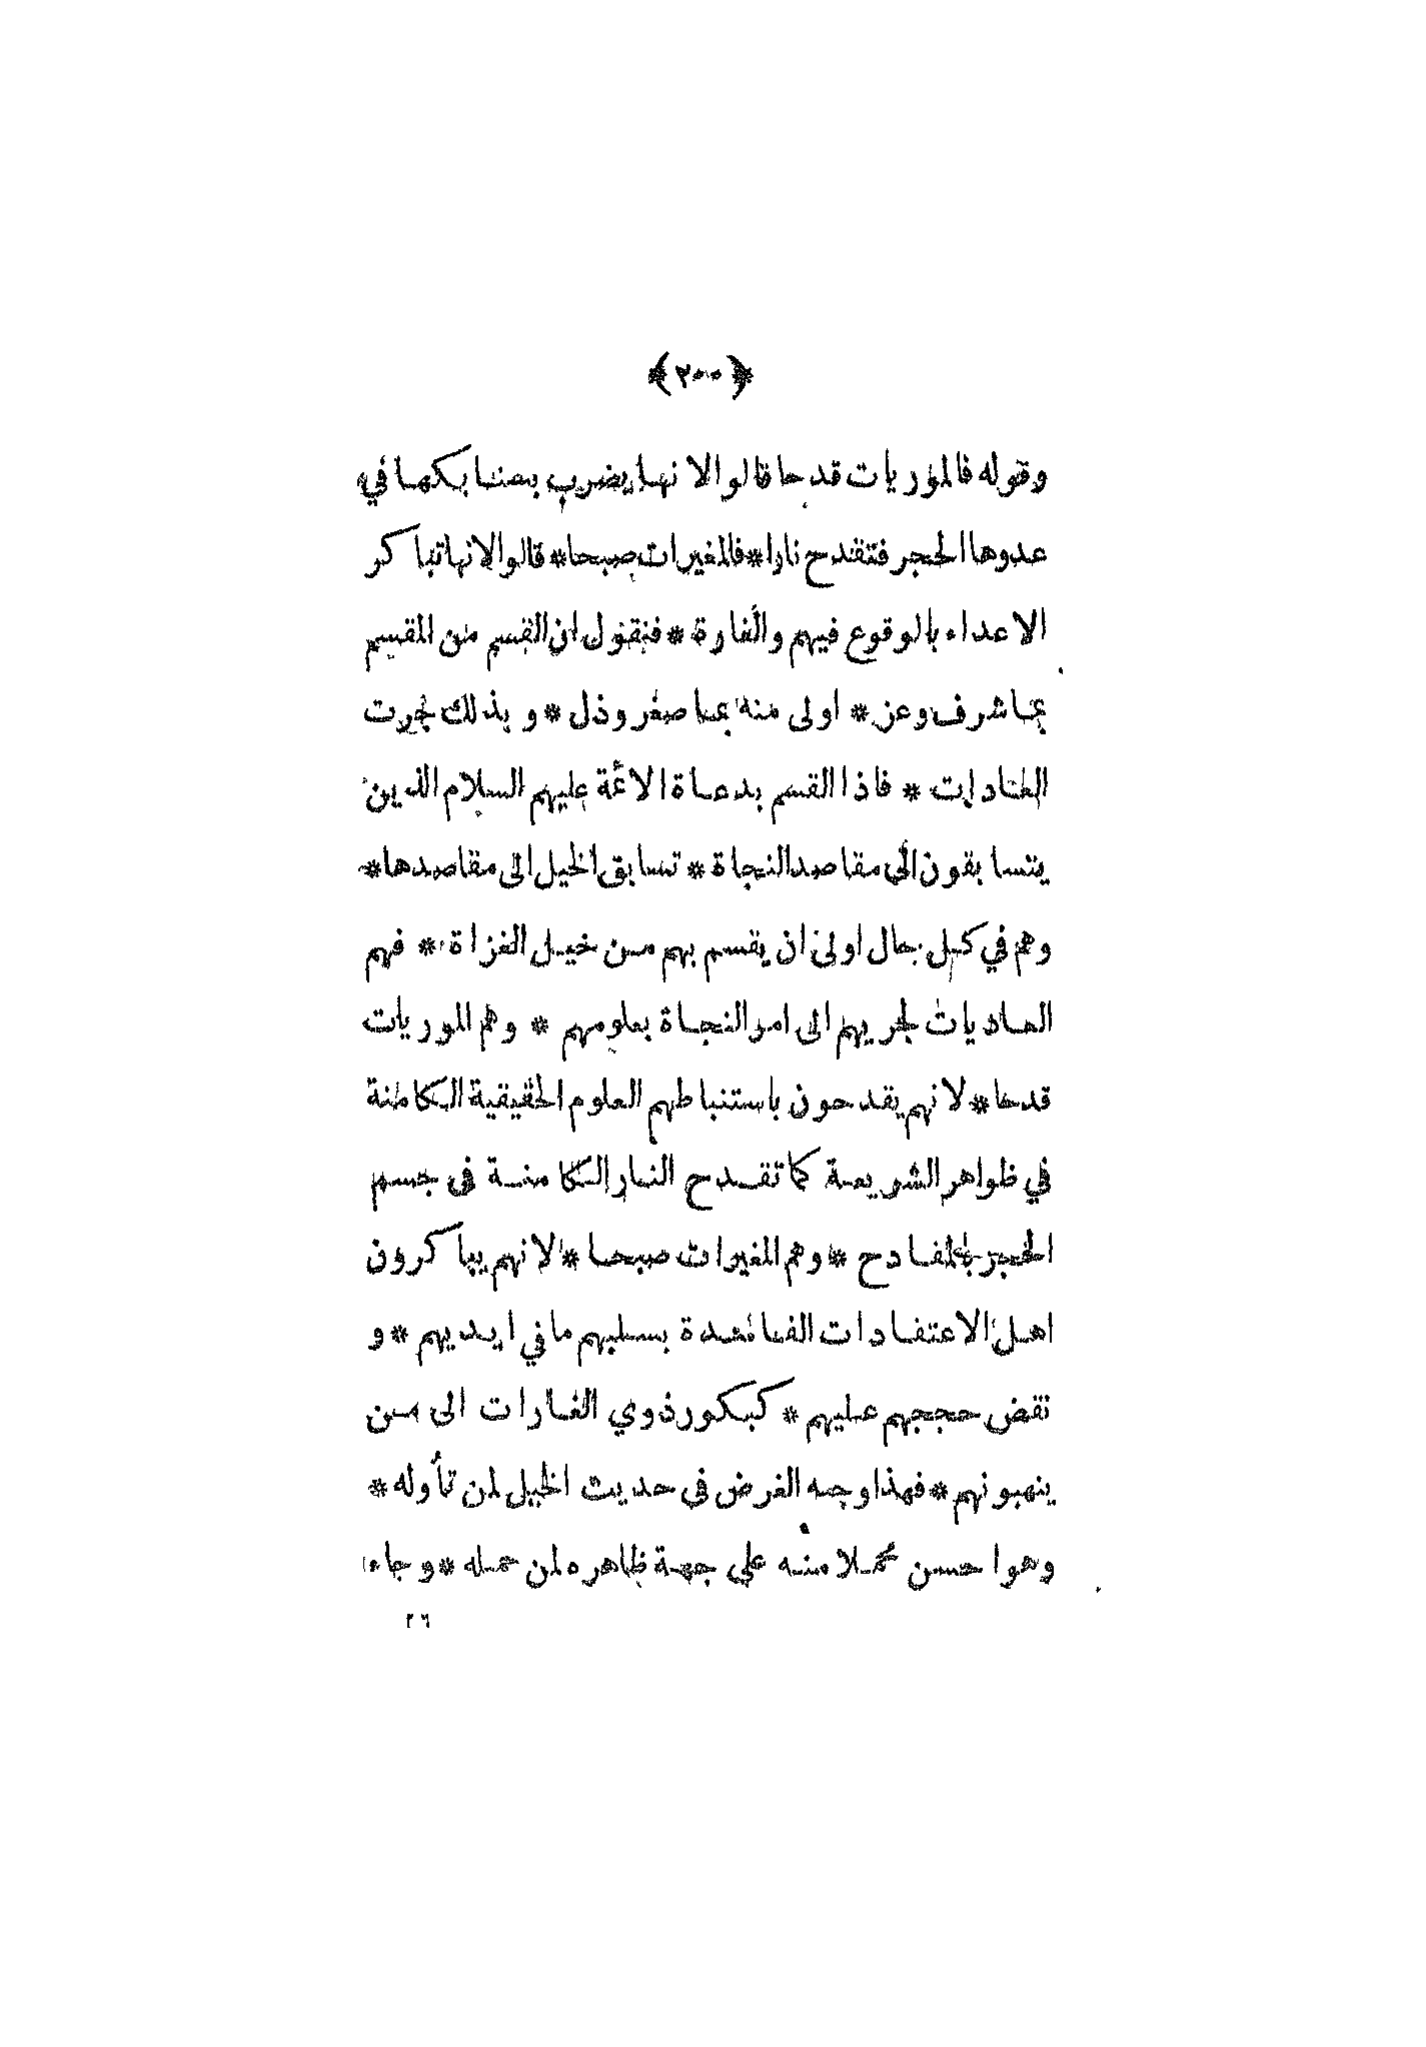 ﴿٢٠٠﴾
وقوله فالموريات قدحا قالوا لانها يضرب بسنابكها في
عدوها الحجر فتقدح نارا* فالمغيرات صبحا* قالوا لانها تباكر
الاعداء بالوقوع فيهم والغارة* فنقول ان القسم من المقسم
بما شرف وعز* اولى منه بما صغر وذل* و بذلك جرت
العادات* فاذا القسم بدعاة الائمة عليهم السلام الذين
يتسابقون الى مقاصد النجاة* تسابق الخيل الى مقاصدها*
وهم في كل حال اولى ان يقسم بهم من خيل الغزاة* فهم
العاديات لجريهم الى امر النجاة بعلومهم* وهم الموريات
قدحا* لانهم يقدحون باستنباطهم العلوم الحقيقية الكامنة
في ظواهر الشريعة كما تقدح النار الكامنة في جسم
الحجر بالمقادح* وهم المغيرات صبحا* لانهم يباكرون
اهل الاعتقادات الفاسدة بسلبهم ما في ايديهم* و
نقض حججهم عليهم* كبكور ذوي الغارات الى من
ينهبونهم* فهذا وجه الغرض في حديث الخيل لمن تأوله*
وهو احسن محملا منه على جهة ظاهره لمن حمله* وجاء
٢٦